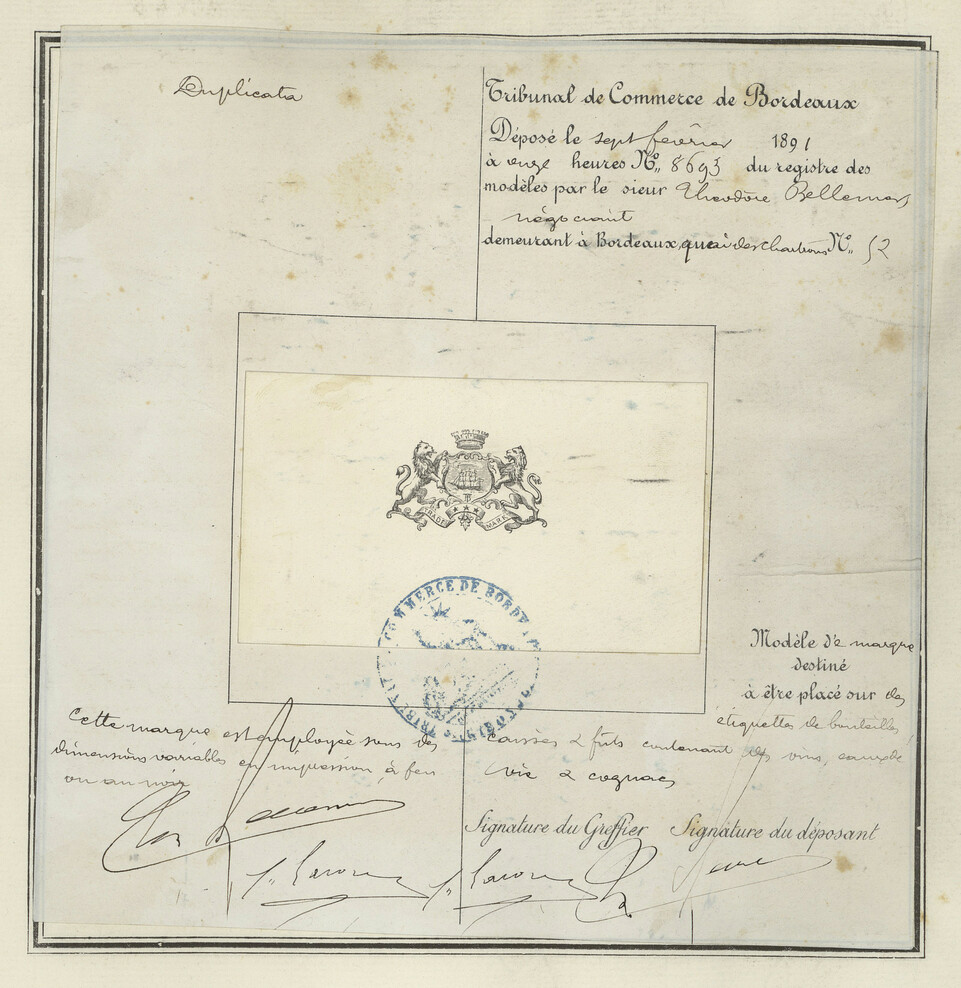 Duplicata
Tribunal de Commerce de Bordeaux
Déposé le sept février 1891
à onze heures No. 8693 du registre des
modèles par le sieur Théodore
négociant
demeurant à Bordeaux, quai des Chartrons No. 52
TRADE MARK
COMMERCE DE BORD
Modèle de marque
destiné
à être placé sur des
étiquettes de bouteilles
Caisses & fûts contenant des vins, eaux de
vie & cognacs
Cette marque est employée sous des
dimensions variables en impression, à feu
ou au noir
Signature du Greffier Signature du déposant